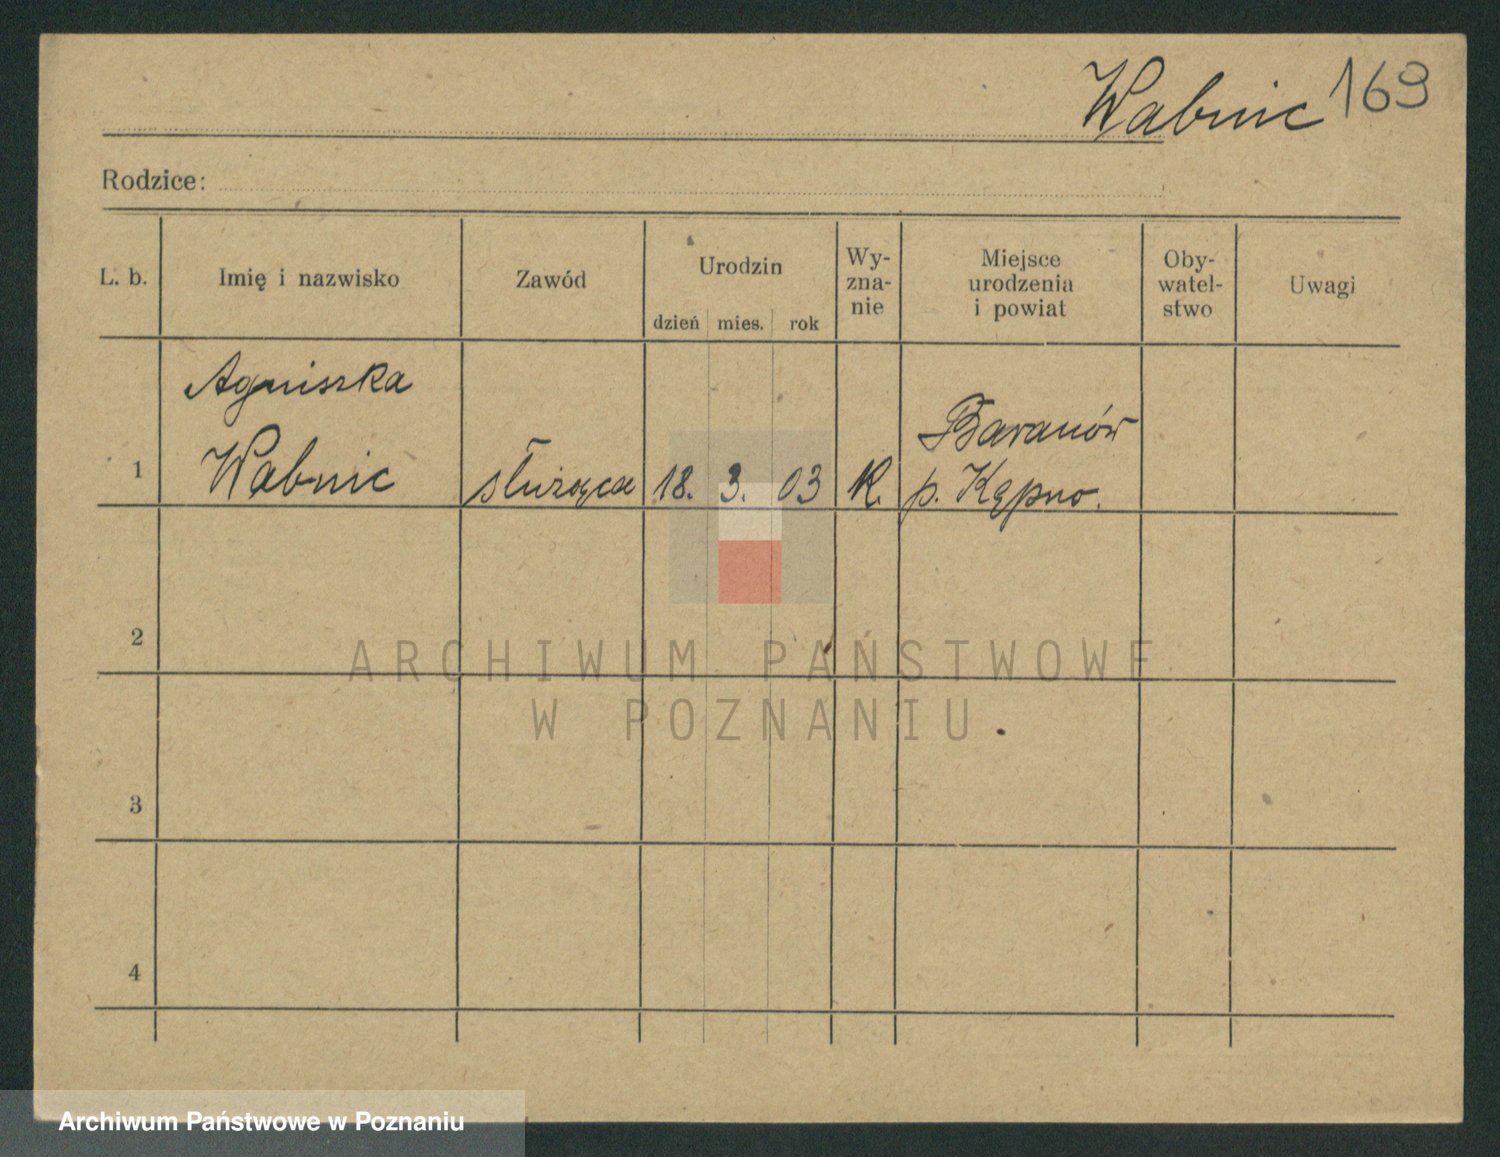 Wabnic 169
Rodzice:
L. b. Imię i nazwisko Zawód Urodzin dzień mies. rok Wy-
zna-
nie Miejsce
urodzenia
i powiat Oby-
watel-
stwo Uwagi
Agniszka
Baranów
1 Wabnic służąca 18. 3. 03 R. p. Kępno.
2
ARCHIWUM PAŃSTWOWE
W POZNANIU
3
4
Archiwum Państwowe w Poznaniu